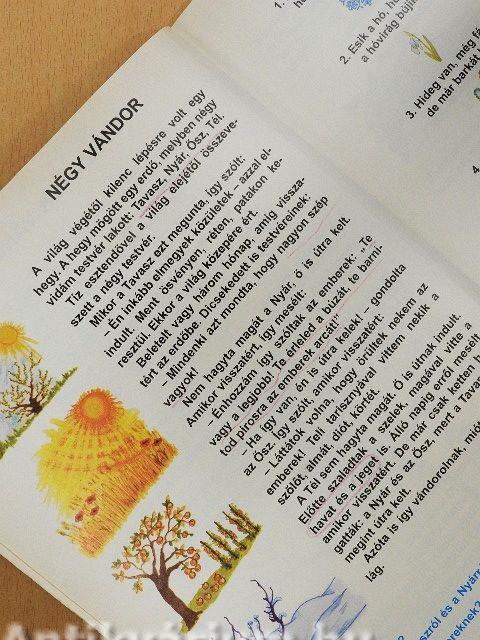 1.
2. Esik a hó, h
a hóvirág bújik
3. Hideg van, még fá
de már barkát
4.
NÉGY VÁNDOR
A világ végétől kilenc lépésre volt egy
hegy. A hegy mögött egy erdő, melyben négy
vidám testvér lakott: Tavasz, Nyár, Ősz, Tél.
Tíz esztendővel a világ elejétől összeve-
szett a négy testvér.
Mikor a Tavasz ezt megunta, így szólt:
– Én inkább elmegyek közületek – azzal el-
indult. Ment ösvényen, réten, patakon ke-
resztül. Ekkor a világ közepére ért.
Beletelt vagy három hónap, amíg vissza-
tért az erdőbe. Dicsekedett is testvéreinek:
– Mindenki azt mondta, hogy nagyon szép
vagyok!
Nem hagyta magát a Nyár: ő is útra kelt.
Amikor visszatért, így mesélt:
– Énhozzám így szóltak az emberek: „Te
vagy a legjobb. Te érleled a búzát, te barní-
tod pirosra az emberek arcát!"
– Ha így van, én is útra kelek! – gondolta
az Ősz. Így szólt, amikor visszatért:
– Láttátok volna, hogy örültek nekem az
emberek! Teli tarisznyával vittem nekik a
szőlőt, almát, diót, körtét.
A Tél sem hagyta magát. Ő is útnak indult.
Előtte szaladtak a szelek, magával vitte a
havat és a jeget is. Álló napig erről mesélt,
amikor visszatért. De már csak ketten h
gatták: a Nyár és az Ősz, mert a Tava
megint útra kelt.
Azóta is így vándorolnak, mió
lág.
szról és a Nyárr
eknek?